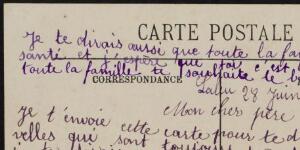 CARTE POSTALE
Je te dirais aussi que toute la fam
santé et j'espère que toi c'est
toute la famille te souhaite le b
CORRESPONDANCE
28 Juin
Mon cher père
Je t'envoie cette carte pour te d
velles qui sont toujours